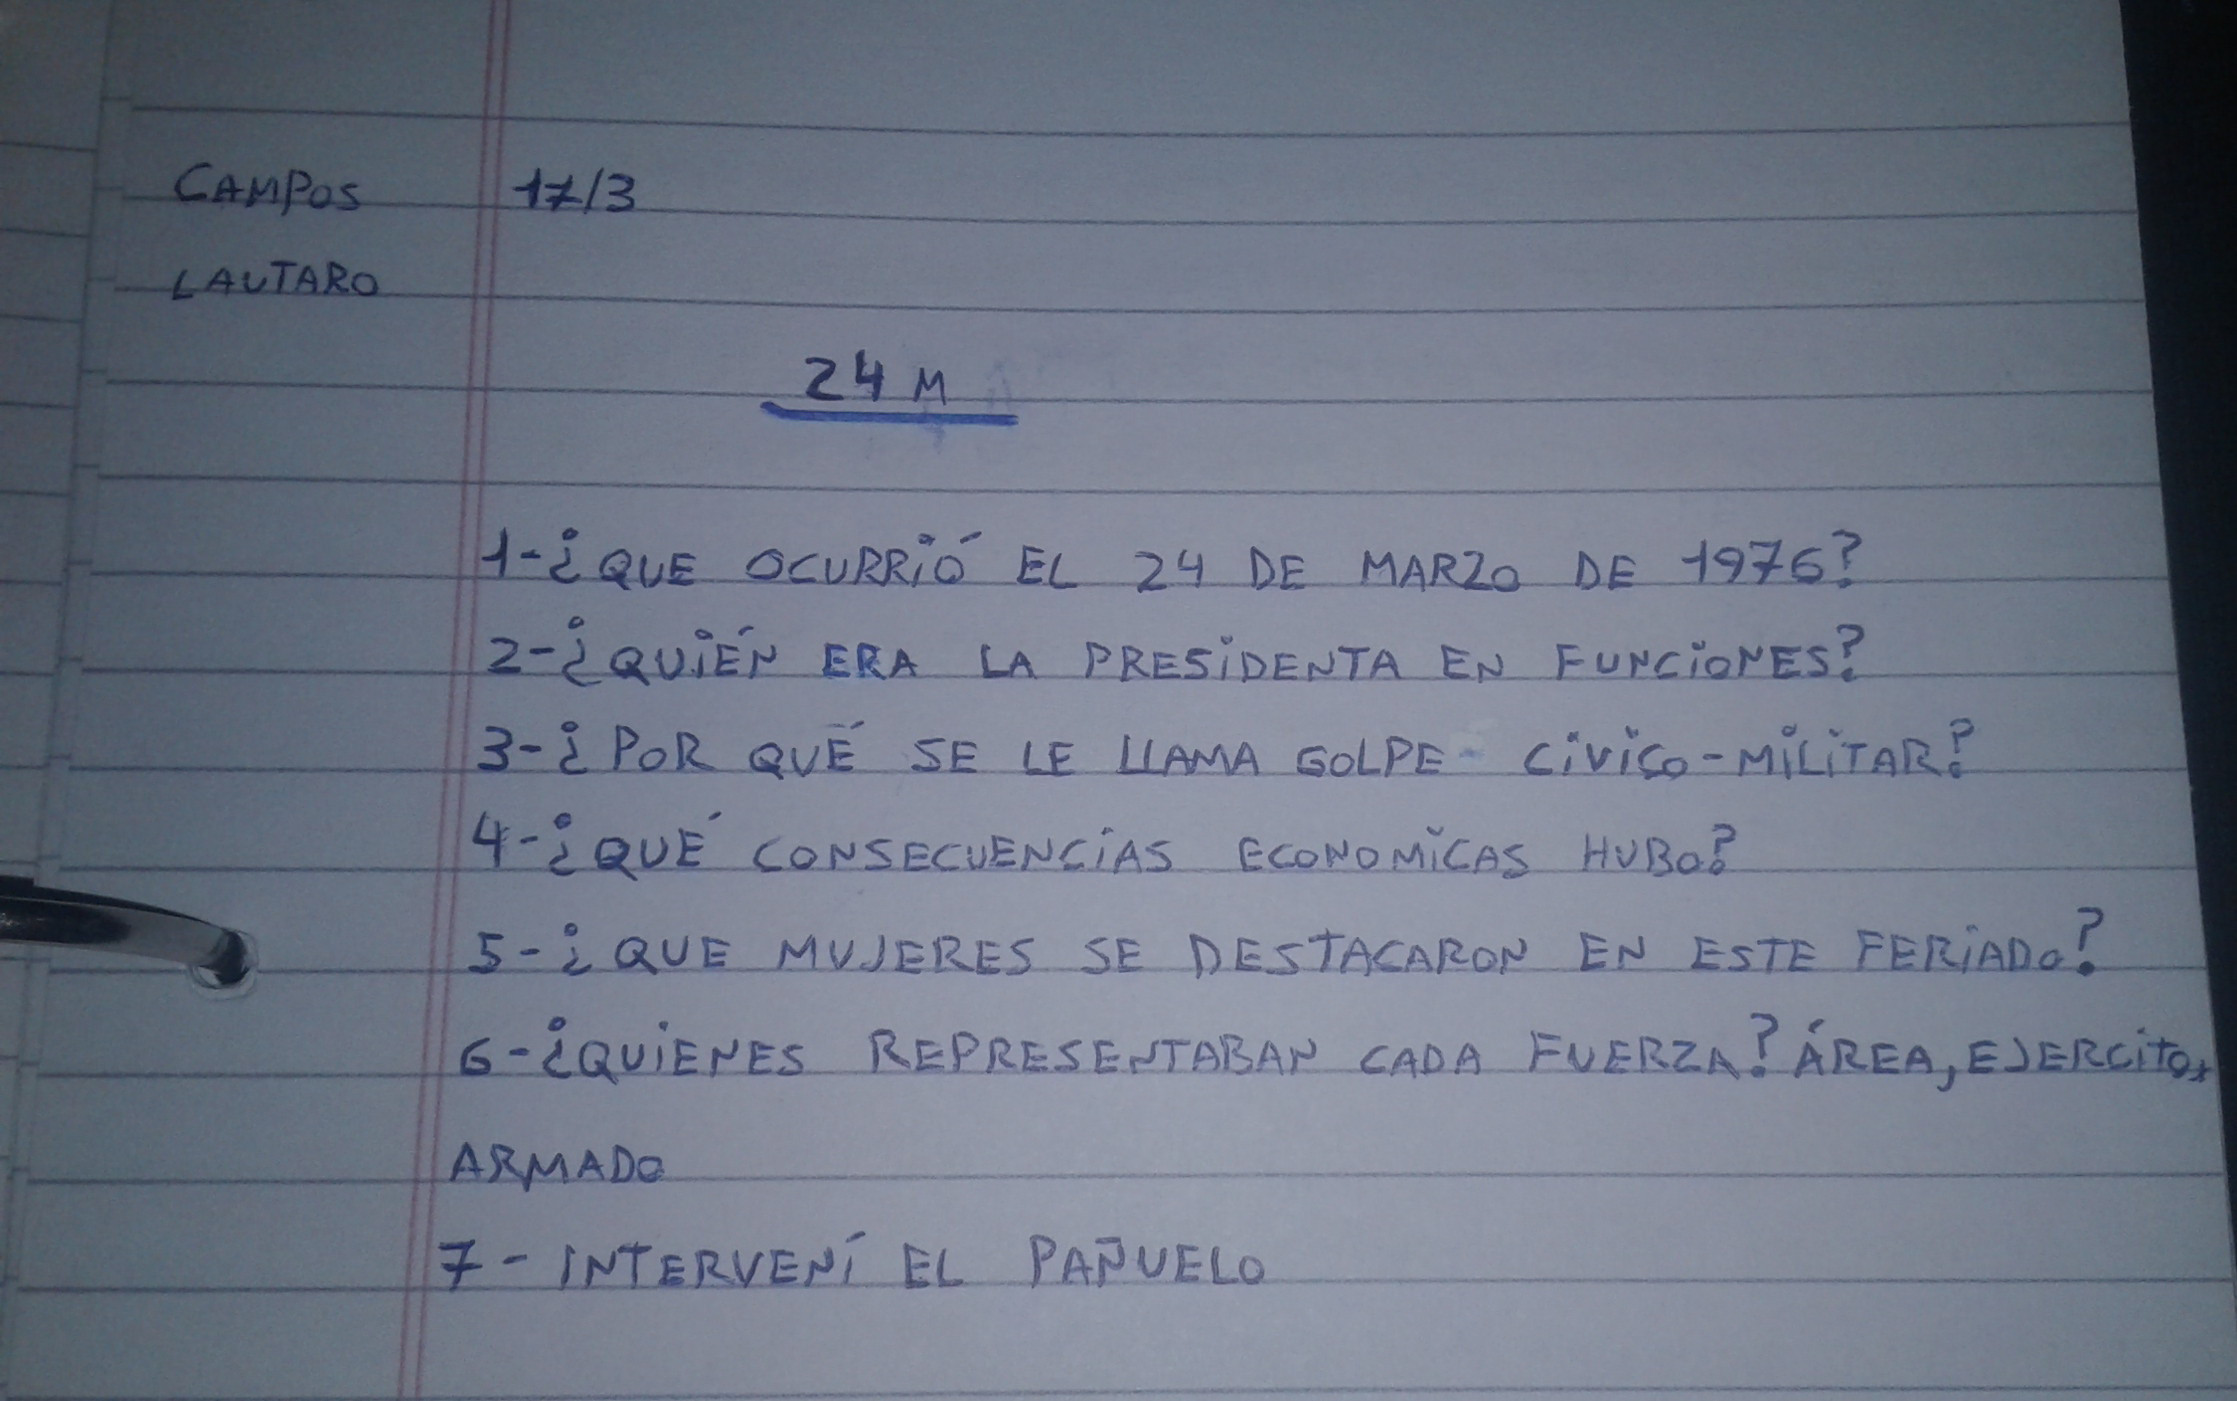 CAMPOS 17/3
LAUTARO
24 M
1-¿QUE OCURRIÓ EL 24 DE MARZO DE 1976?
2-¿QUIÉN ERA LA PRESIDENTA EN FUNCIONES?
3-¿POR QUÉ SE LE LLAMA GOLPE CIVICO-MILITAR?
4-¿QUÉ CONSECUENCIAS ECONOMICAS HUBO?
5-¿QUE MUJERES SE DESTACARON EN ESTE FERIADO?
6-¿QUIENES REPRESENTABAN CADA FUERZA? ÁREA, EJERCITO,
ARMADO
7- INTERVENÍ EL PAÑUELO